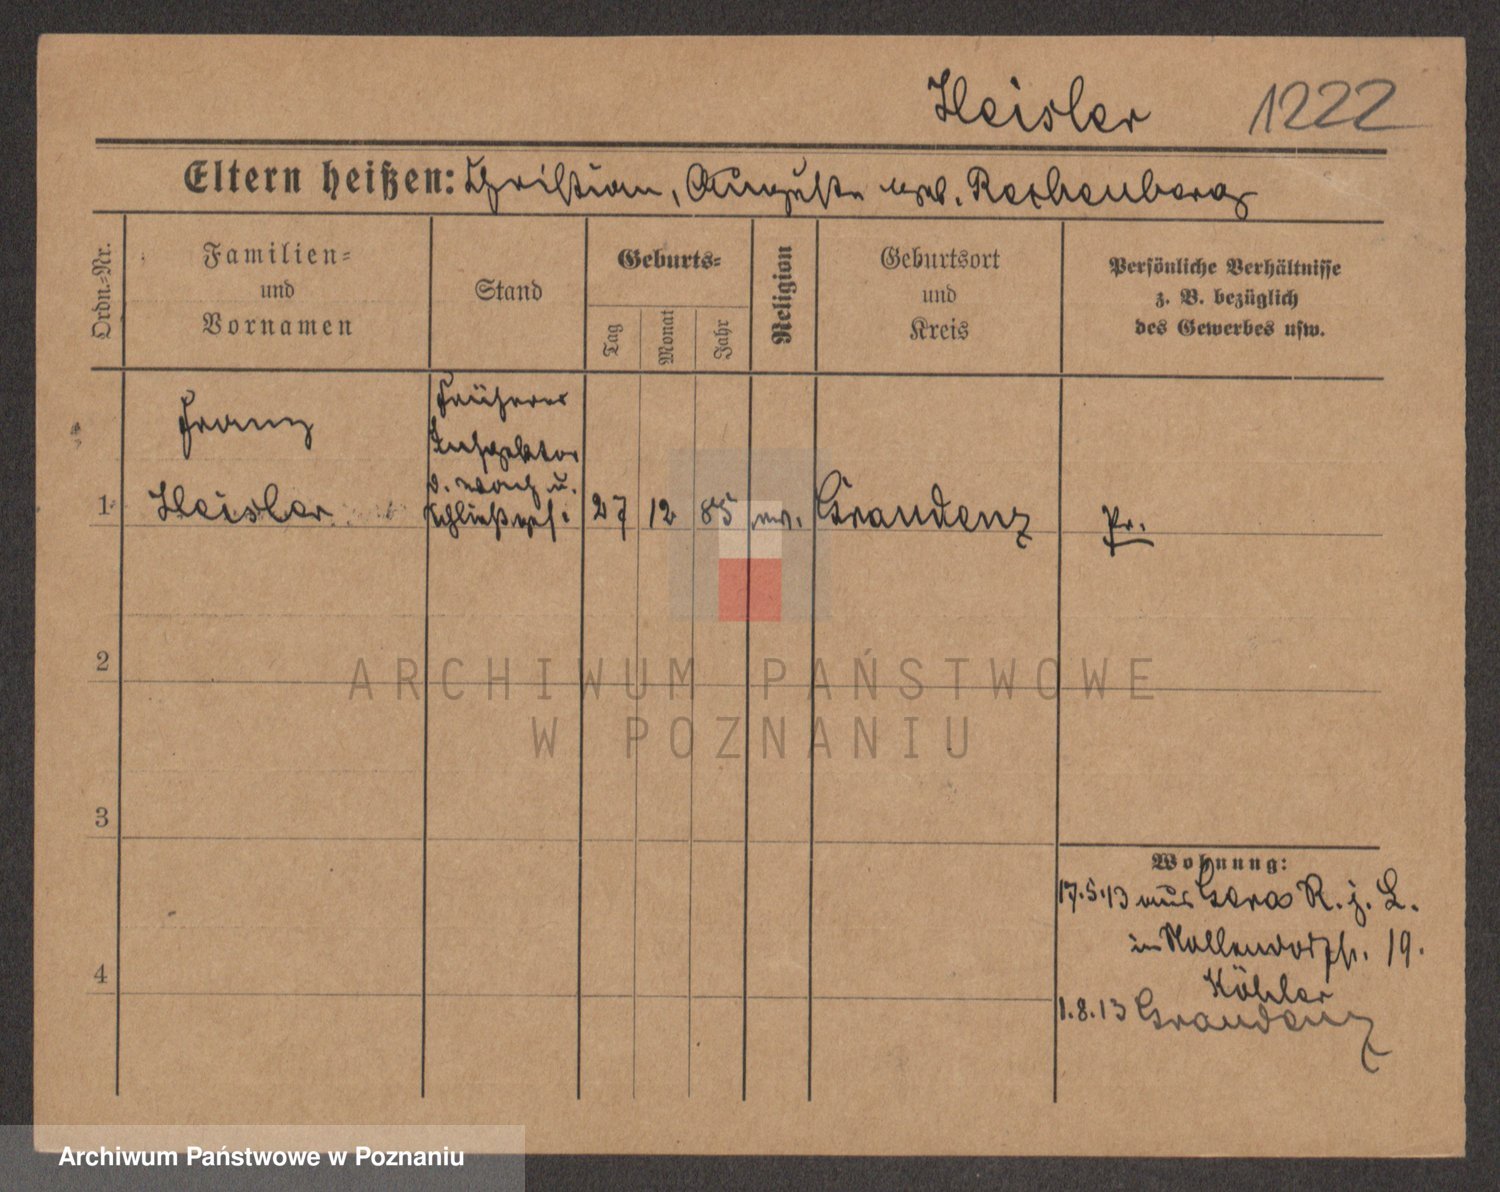 Heisler 1222
Eltern heißen: Christian, Auguste geb. Rechenberg
Ordn.-Nr.
Familien-
und
Vornamen
Stand
Geburts-
Tag
Monat
Jahr
Religion
Geburtsort
und
Kreis
Persönliche Verhältnisse
z. B. bezüglich
des Gewerbes usw.
Franz
Früherer
Inspektor
d. Wach u.
1 Heisler Schließges. 27 12 85 ev. Graudenz Pr.
2
3
4
Wohnung:
17.5.13 aus Gera R. j. L.
in Nollendorfstr. 19.
Köhler
1.8.13 Graudenz
ARCHIWUM PAŃSTWOWE
W POZNANIU
Archiwum Państwowe w Poznaniu